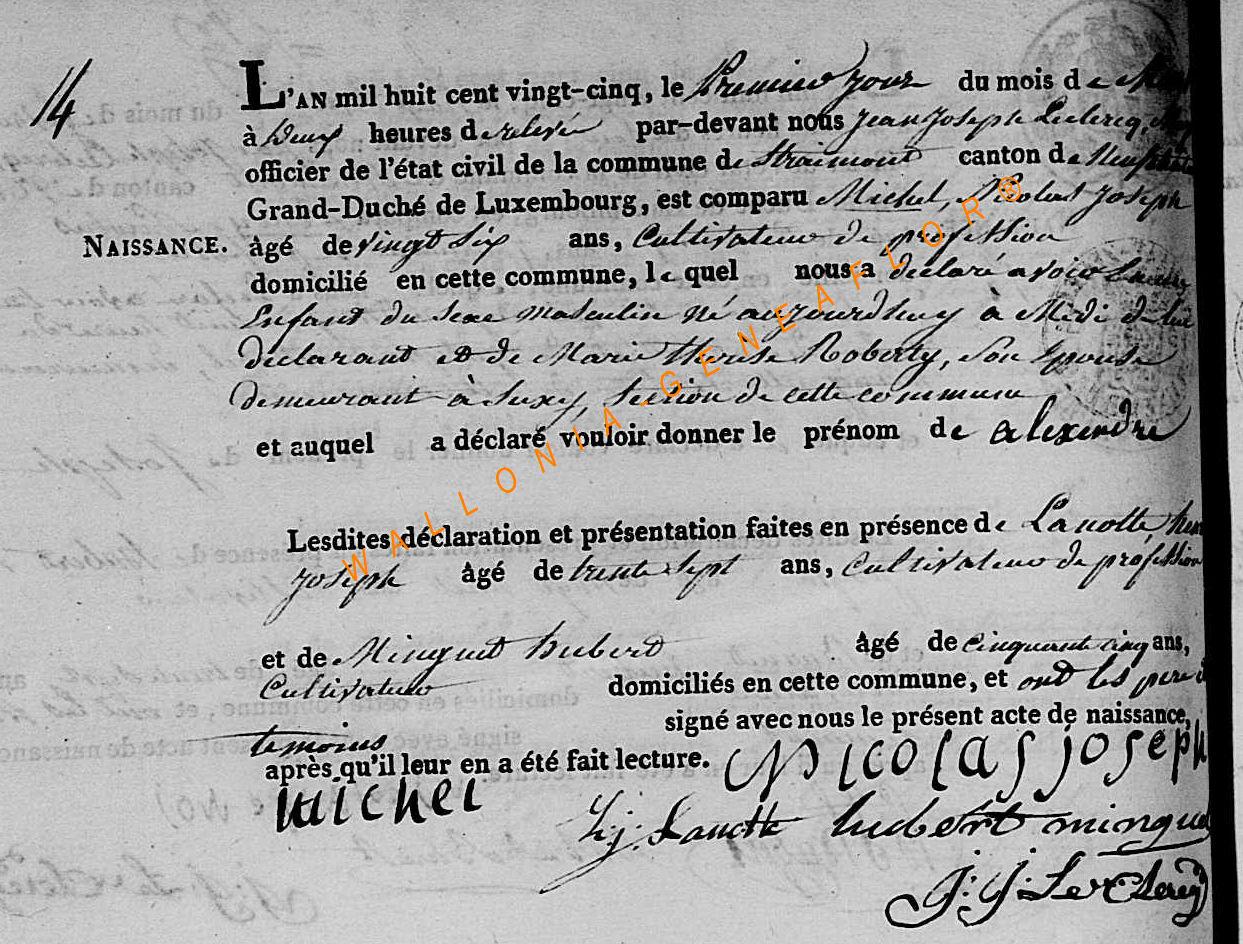 14
L'AN mil huit cent vingt-cinq, le Premier jour du mois de
à deux heures de relevée par-devant nous jean joseph Leclercq,
officier de l'état civil de la commune de Straimont canton de
Grand-Duché de Luxembourg, est comparu Michel, Nicolas Joseph
NAISSANCE. âgé de vingt six ans, Cultivateur de profession
domicilié en cette commune, le quel nous a déclaré avoir
Enfant du sexe masculin né aujourdhuy à Midi de lui
declarant et de Marie therese Roberty, son Epouse
demeurant à Suxy, section de cette commune
et auquel a déclaré vouloir donner le prénom de alexandre
Lesdites déclaration et présentation faites en présence de Lanotte,
joseph âgé de trente sept ans, Cultivateur de profession
et de Minguet hubert âgé de cinquante cinq ans,
Cultivateur domiciliés en cette commune, et ont les
temoins signé avec nous le présent acte de naissance,
après qu'il leur en a été fait lecture. Nicolas joseph
michel
h.j. Lanotte hubert minguet
J: J: Le Clercq
WALLONIA-GENEAFLOR®